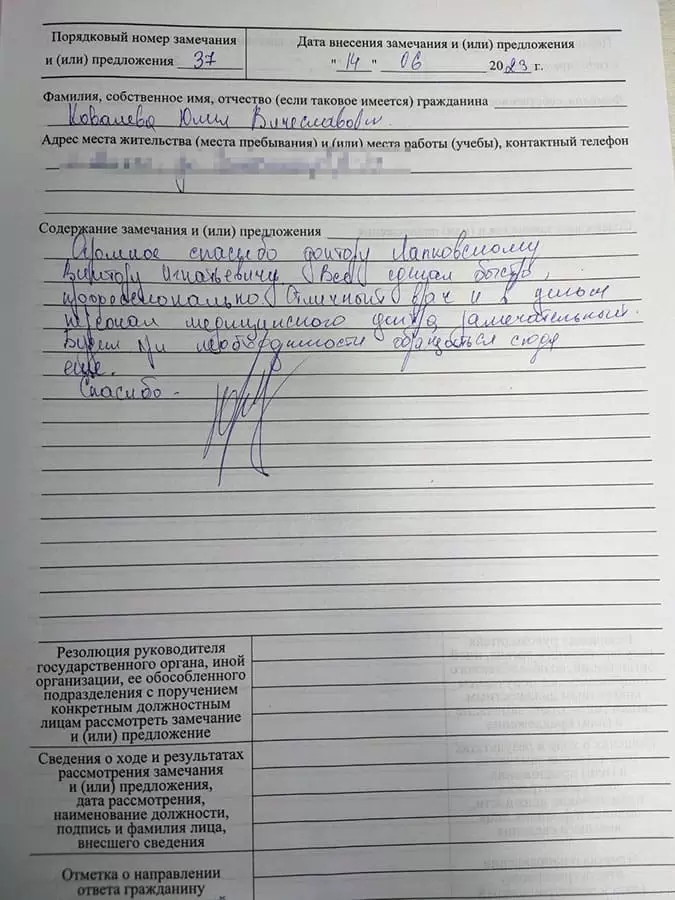 Порядковый номер замечания
и (или) предложения 37
Дата внесения замечания и (или) предложения
"14" 06 2023 г.
Фамилия, собственное имя, отчество (если таковое имеется) гражданина
Ковалева Юлия Вячеславовн.
Адрес места жительства (места пребывания) и (или) места работы (учебы), контактный телефон
Содержание замечания и (или) предложения
Огромное спасибо доктору Лапковскому
Виктору Игнатьевичу Все сделал быстро,
профессионально Отличный врач и в целом
персонал медицинского центра замечательный.
Будем при необходимости обращаться сюда
еще.
Спасибо.
Резолюция руководителя
государственного органа, иной
организации, ее обособленного
подразделения с поручением
конкретным должностным
лицам рассмотреть замечание
и (или) предложение
Сведения о ходе и результатах
рассмотрения замечания
и (или) предложения,
дата рассмотрения,
наименование должности,
подпись и фамилия лица,
внесшего сведения
Отметка о направлении
ответа гражданину